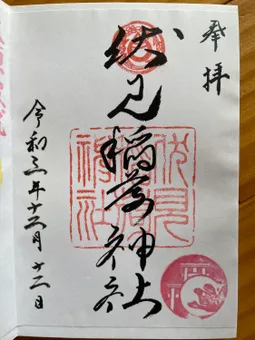 奉拝
伏見稲荷神社
伏見
神社
令和三年十二月十二日